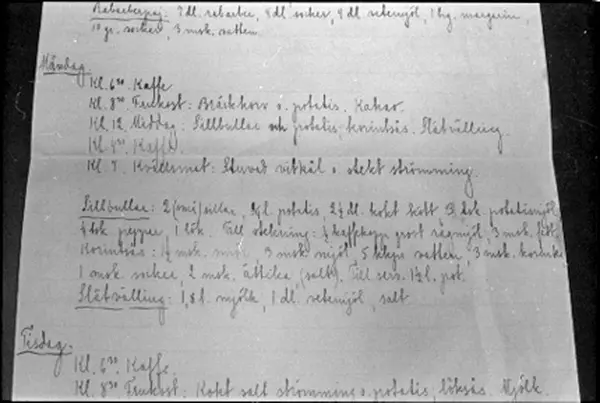 Rabarberpaj: 7 dl. rabarber, 4 dl. socker, 4 dl. vetemjöl, 1 hg. margarin,
10 gr. socker, 3 msk. vatten.
Måndag.
Kl. 6³⁰ Kaffe
Kl. 8³⁰ Frukost: Bräckkorv o. potatis. Kakao.
Kl. 12. Middag: Sillbullar och potatis, korintsås. Slätvälling.
Kl. 4³⁰ Kaffe.
Kl. 7. Kvällsmat: Stuvad vitkål o. stekt strömming.
Sillbullar: 2 (små) sillar, l. potatis, 2½ dl. kokt kött, dsk. potatismjöl
tsk. peppar, 1 lök. Till stekning: kaffekopp grovt rågmjöl, 3 msk.
Korintsås: msk. smör, 3 msk. mjöl, 5 vatten, 3 msk. korinter
1 msk. socker, 2 msk. ättika, (salt). Till serv. 1½ l. pot.
Slätvälling: 1,8 l. mjölk, 1 dl. vetemjöl, salt.
Tisdag.
Kl. 6³⁰ Kaffe.
Kl. 8³⁰ Frukost: Kokt salt strömming o. potatis, löksås. Mjölk.